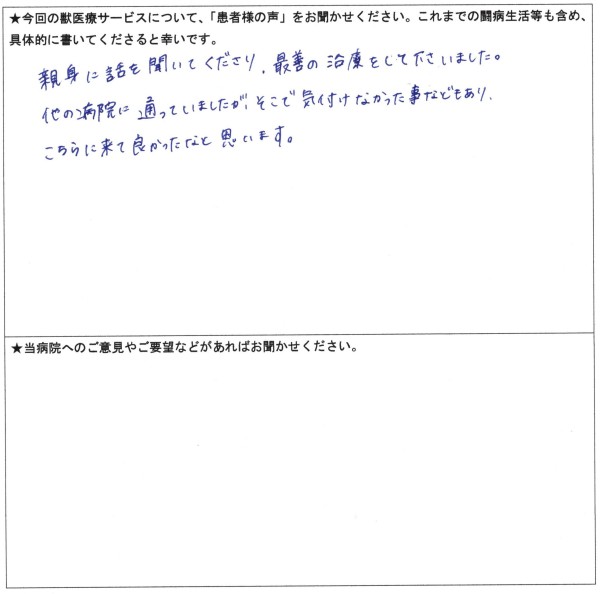 ★今回の獣医療サービスについて、「患者様の声」をお聞かせください。これまでの闘病生活等も含め、
具体的に書いてくださると幸いです。
親身に話を聞いてくださり、最善の治療をして下さいました。
他の病院に通っていましたが、そこで気付けなかった事などもあり、
こちらに来て良かったなと思います。
★当病院へのご意見やご要望などがあればお聞かせください。